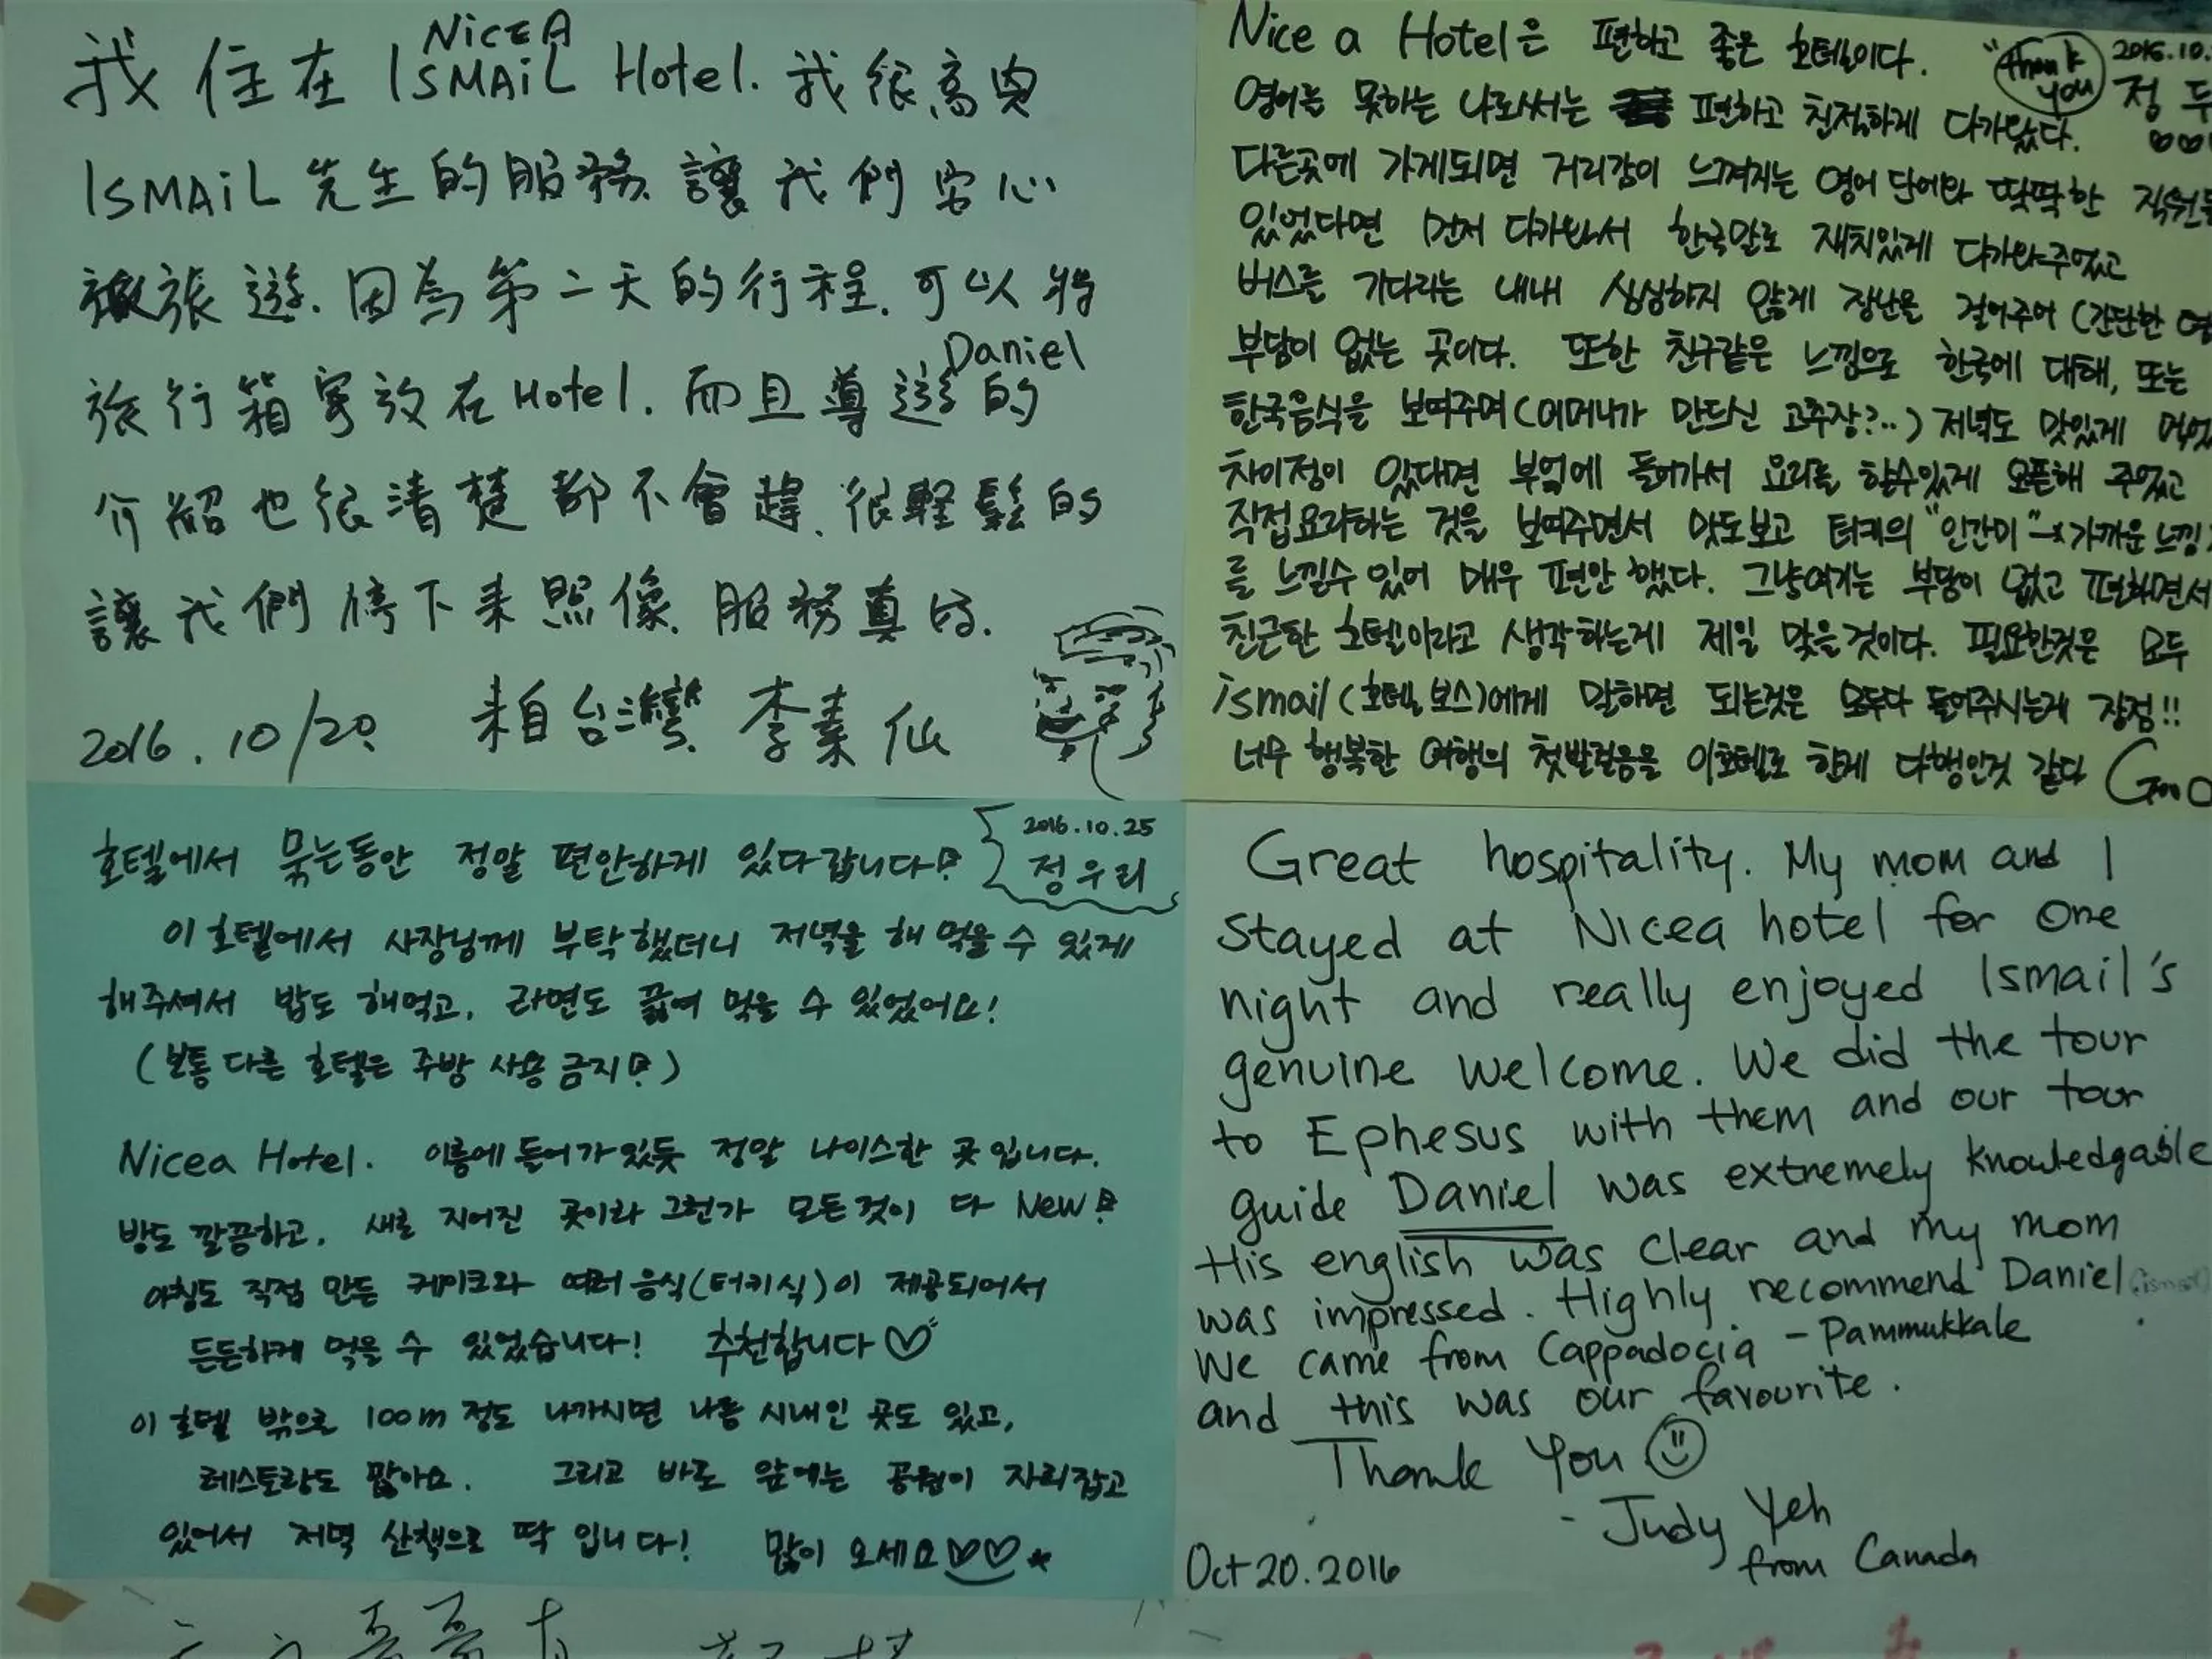 NiCEA
我住在 ISMAiL Hotel. 我很高興
ISMAiL 先生的服務讓我們安心
旅遊. 因為第二天的行程. 可以將
Daniel
旅行箱寄放在Hotel. 而且導遊的
介紹也很清楚都不會趕. 很輕鬆的
讓我們停下來照像. 服務真好.
2016.10/20. 來自台灣. 李素仙
Nice a Hotel은 편하고 좋은 호텔이다. "Thank you 2016.10.
영어를 못하는 나로써는 편하고 친절하게 다가왔다. 정
다른곳에 가게되면 거리감이 느껴지는 영어 단어와 딱딱한
있었다면 먼저 다가와서 한국말로 재치있게 다가와주었고
버스를 기다리는 내내 심심하지 않게 장난을 걸어주어 (간단한
부담이 없는 곳이다. 또한 친구같은 느낌으로 한국에 대해, 또는
한국음식을 보여주며 (어머니가 만드신 고추장?..) 저녁도 맛있게
차이점이 있다면 부엌에 들어가서 요리를 할수있게 오픈해 주었고
직접요리하는 것을 보여주면서 맛도보고 터키의 "인간미" 가까운 느낌
를 느낄수 있어 매우 편안했다. 그냥여기는 부담이 없고 편하면서
친근한 호텔이라고 생각하는게 제일 맞을것이다. 필요한것은 모두
ismail (호텔 보스)에게 말하면 되는것은 모두다 들어주시는게 장점!!
너무 행복한 여행의 첫발걸음을 이호텔로 한게 다행인것 같다 Goo
호텔에서 묵는동안 정말 편안하게 있다 갑니다! 2016.10.25
정우리
이 호텔에서 사장님께 부탁했더니 저녁을 해 먹을 수 있게
해주셔서 밥도 해먹고, 라면도 끓여 먹을 수 있었어요!
(보통 다른 호텔은 주방 사용 금지!)
Nicea Hotel. 이름에 들어가 있듯 정말 나이스한 곳 입니다.
방도 깔끔하고, 새로 지어진 곳이라 그런가 모든것이 다 New!
아침도 직접 만든 케이크와 여러 음식(터키식)이 제공되어서
든든하게 먹을 수 있었습니다! 추천합니다♡
이 호텔 밖으로 100m 정도 나가시면 나름 시내인 곳도 있고,
레스토랑도 많아요. 그리고 바로 앞에는 공원이 자리잡고
있어서 저녁 산책으로 딱 입니다! 많이 오세요♡♡
Great hospitality. My mom and I
stayed at Nicea hotel for one
night and really enjoyed Ismail's
genuine welcome. We did the tour
to Ephesus with them and our tour
guide Daniel was extremely knowledgable
His english was clear and my mom
was impressed. Highly recommend Daniel (ismail).
We came from Cappadocia - Pammukkale
and this was our favourite.
Thank You
- Judy Yeh
from Canada
Oct 20. 2016